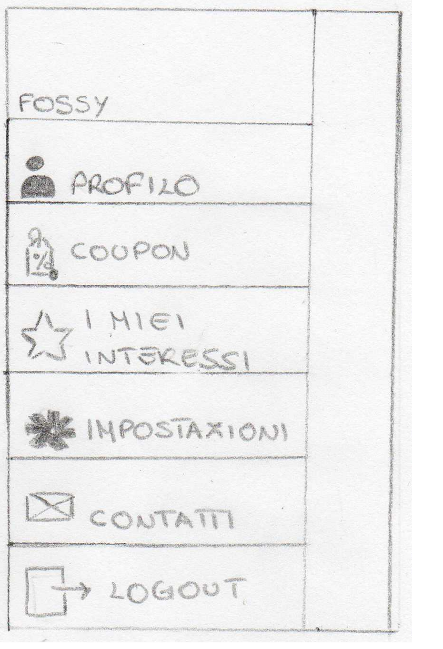 FOSSY
PROFILO
COUPON
%
I MIEI
INTERESSI
IMPOSTAZIONI
CONTATTI
LOGOUT